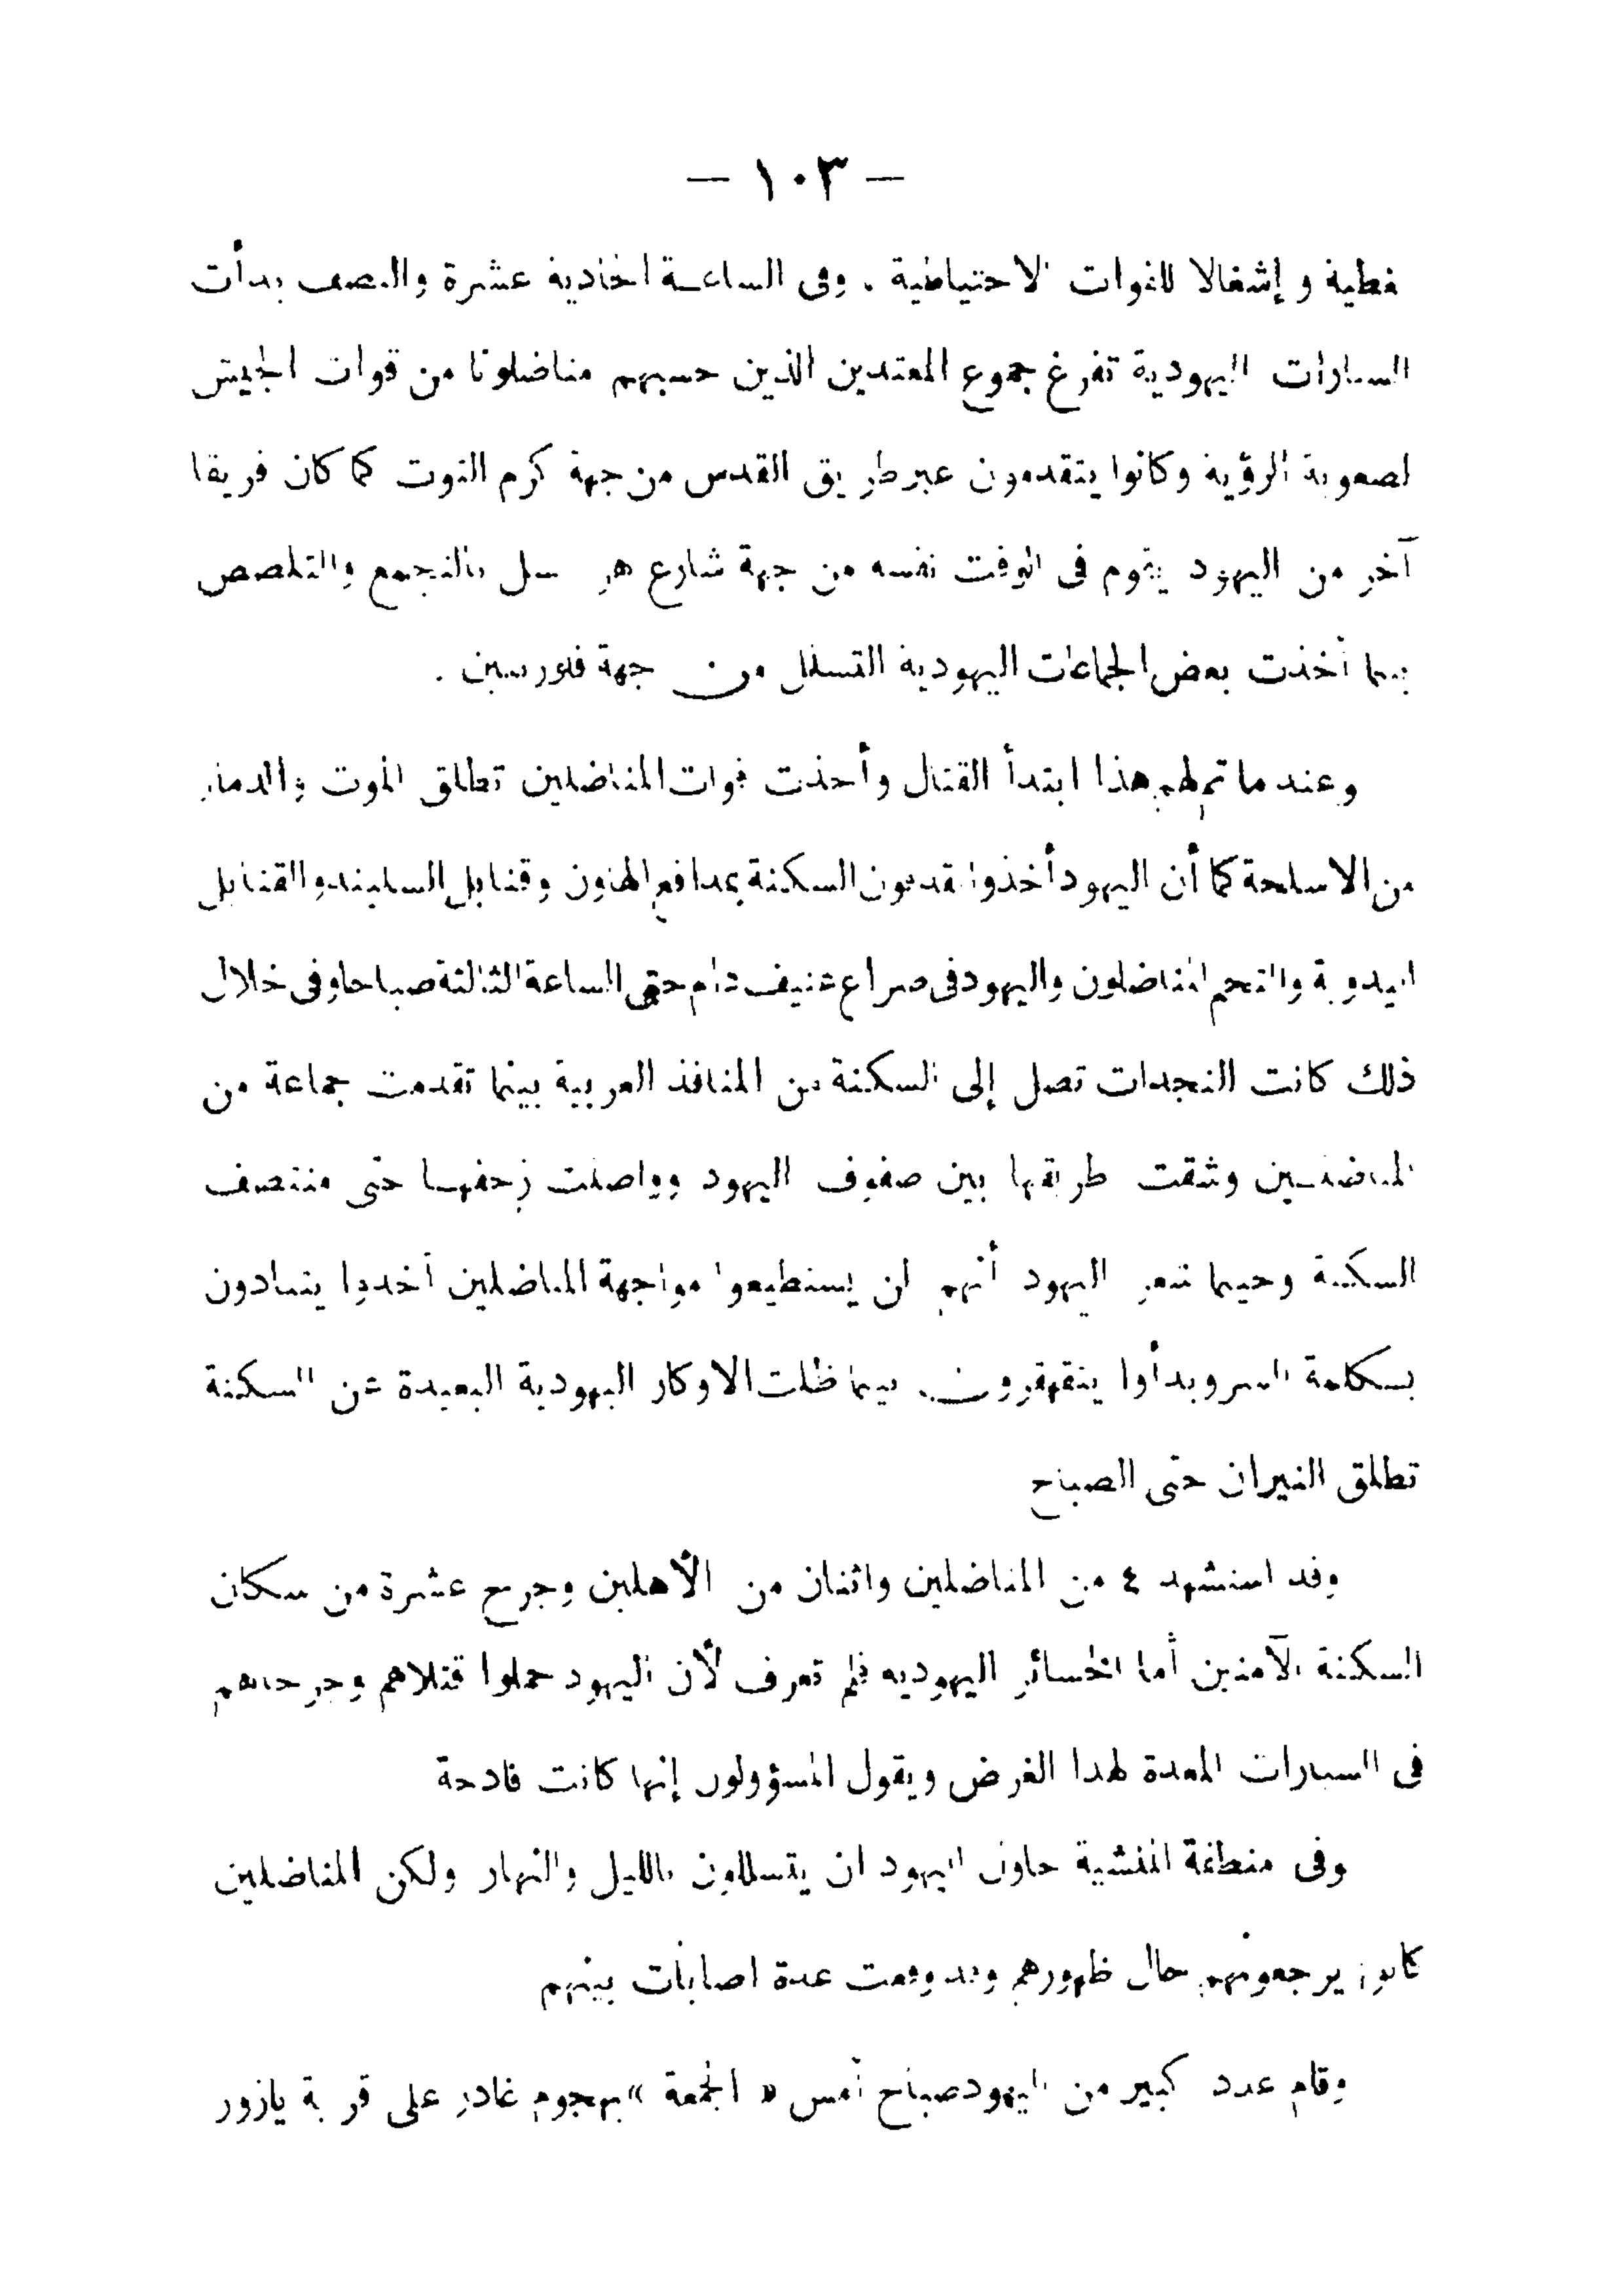 — ١٠٣ —
تغطية وإشغالا للقوات الاحتياطية . وفى الساعة الحادية عشرة والنصف بدأت
السيارات اليهودية تفرغ جموع المعتدين الذين حسبهم مناضلونا من قوات الجيش
لصعوبة الرؤية وكانوا يتقدمون عبر طريق القدس من جهة كرم التوت كما كان فريقا
آخر من اليهود يقوم فى الوقت نفسه من جهة شارع هرتسل بالتجمع والتلصص
بينما أخذت بعض الجماعات اليهودية التسلل من جهة فلورنتين .
وعند ما تم لهم هذا ابتدأ القتال وأخذت قوات المناضلين تطلق الموت والدمار
من الاسلحة كما أن اليهود أخذوا يقذفون السكنة بمدافع الهاون وقنابل السليند والقنابل
اليدوية والتحم المناضلون واليهود فى صراع عنيف دام حتى الساعة الثالثة صباحا وفى خلال
ذلك كانت النجدات تصل إلى السكنة من المنافذ العربية بينما تقدمت جماعة من
المناضلين وشقت طريقها بين صفوف اليهود وواصلت زحفها حتى منتصف
السكنة وحينما شعر اليهود أنهم لن يستطيعوا مواجهة المناضلين أخذوا يتنادون
بكلمة السر وبدأوا يتقهقرون بينما ظلت الاوكار اليهودية البعيدة عن السكنة
تطلق النيران حتى الصباح
وقد استشهد ٤ من المناضلين واثنان من الأهلين وجرح عشرة من سكان
السكنة الآمنين أما الخسائر اليهودية فلم تعرف لأن اليهود حملوا قتلاهم وجرحاهم
فى السيارات المعدة لهذا الغرض ويقول المسؤولون إنها كانت فادحة
وفى منطقة المنشية حاول اليهود ان يتسللون بالليل والنهار ولكن المناضلين
كانوا يرجعونهم حال ظهورهم وقد وقعت عدة اصابات بينهم
وقام عدد كبير من اليهود صباح أمس « الجمعة » بهجوم غادر على قرية يازور